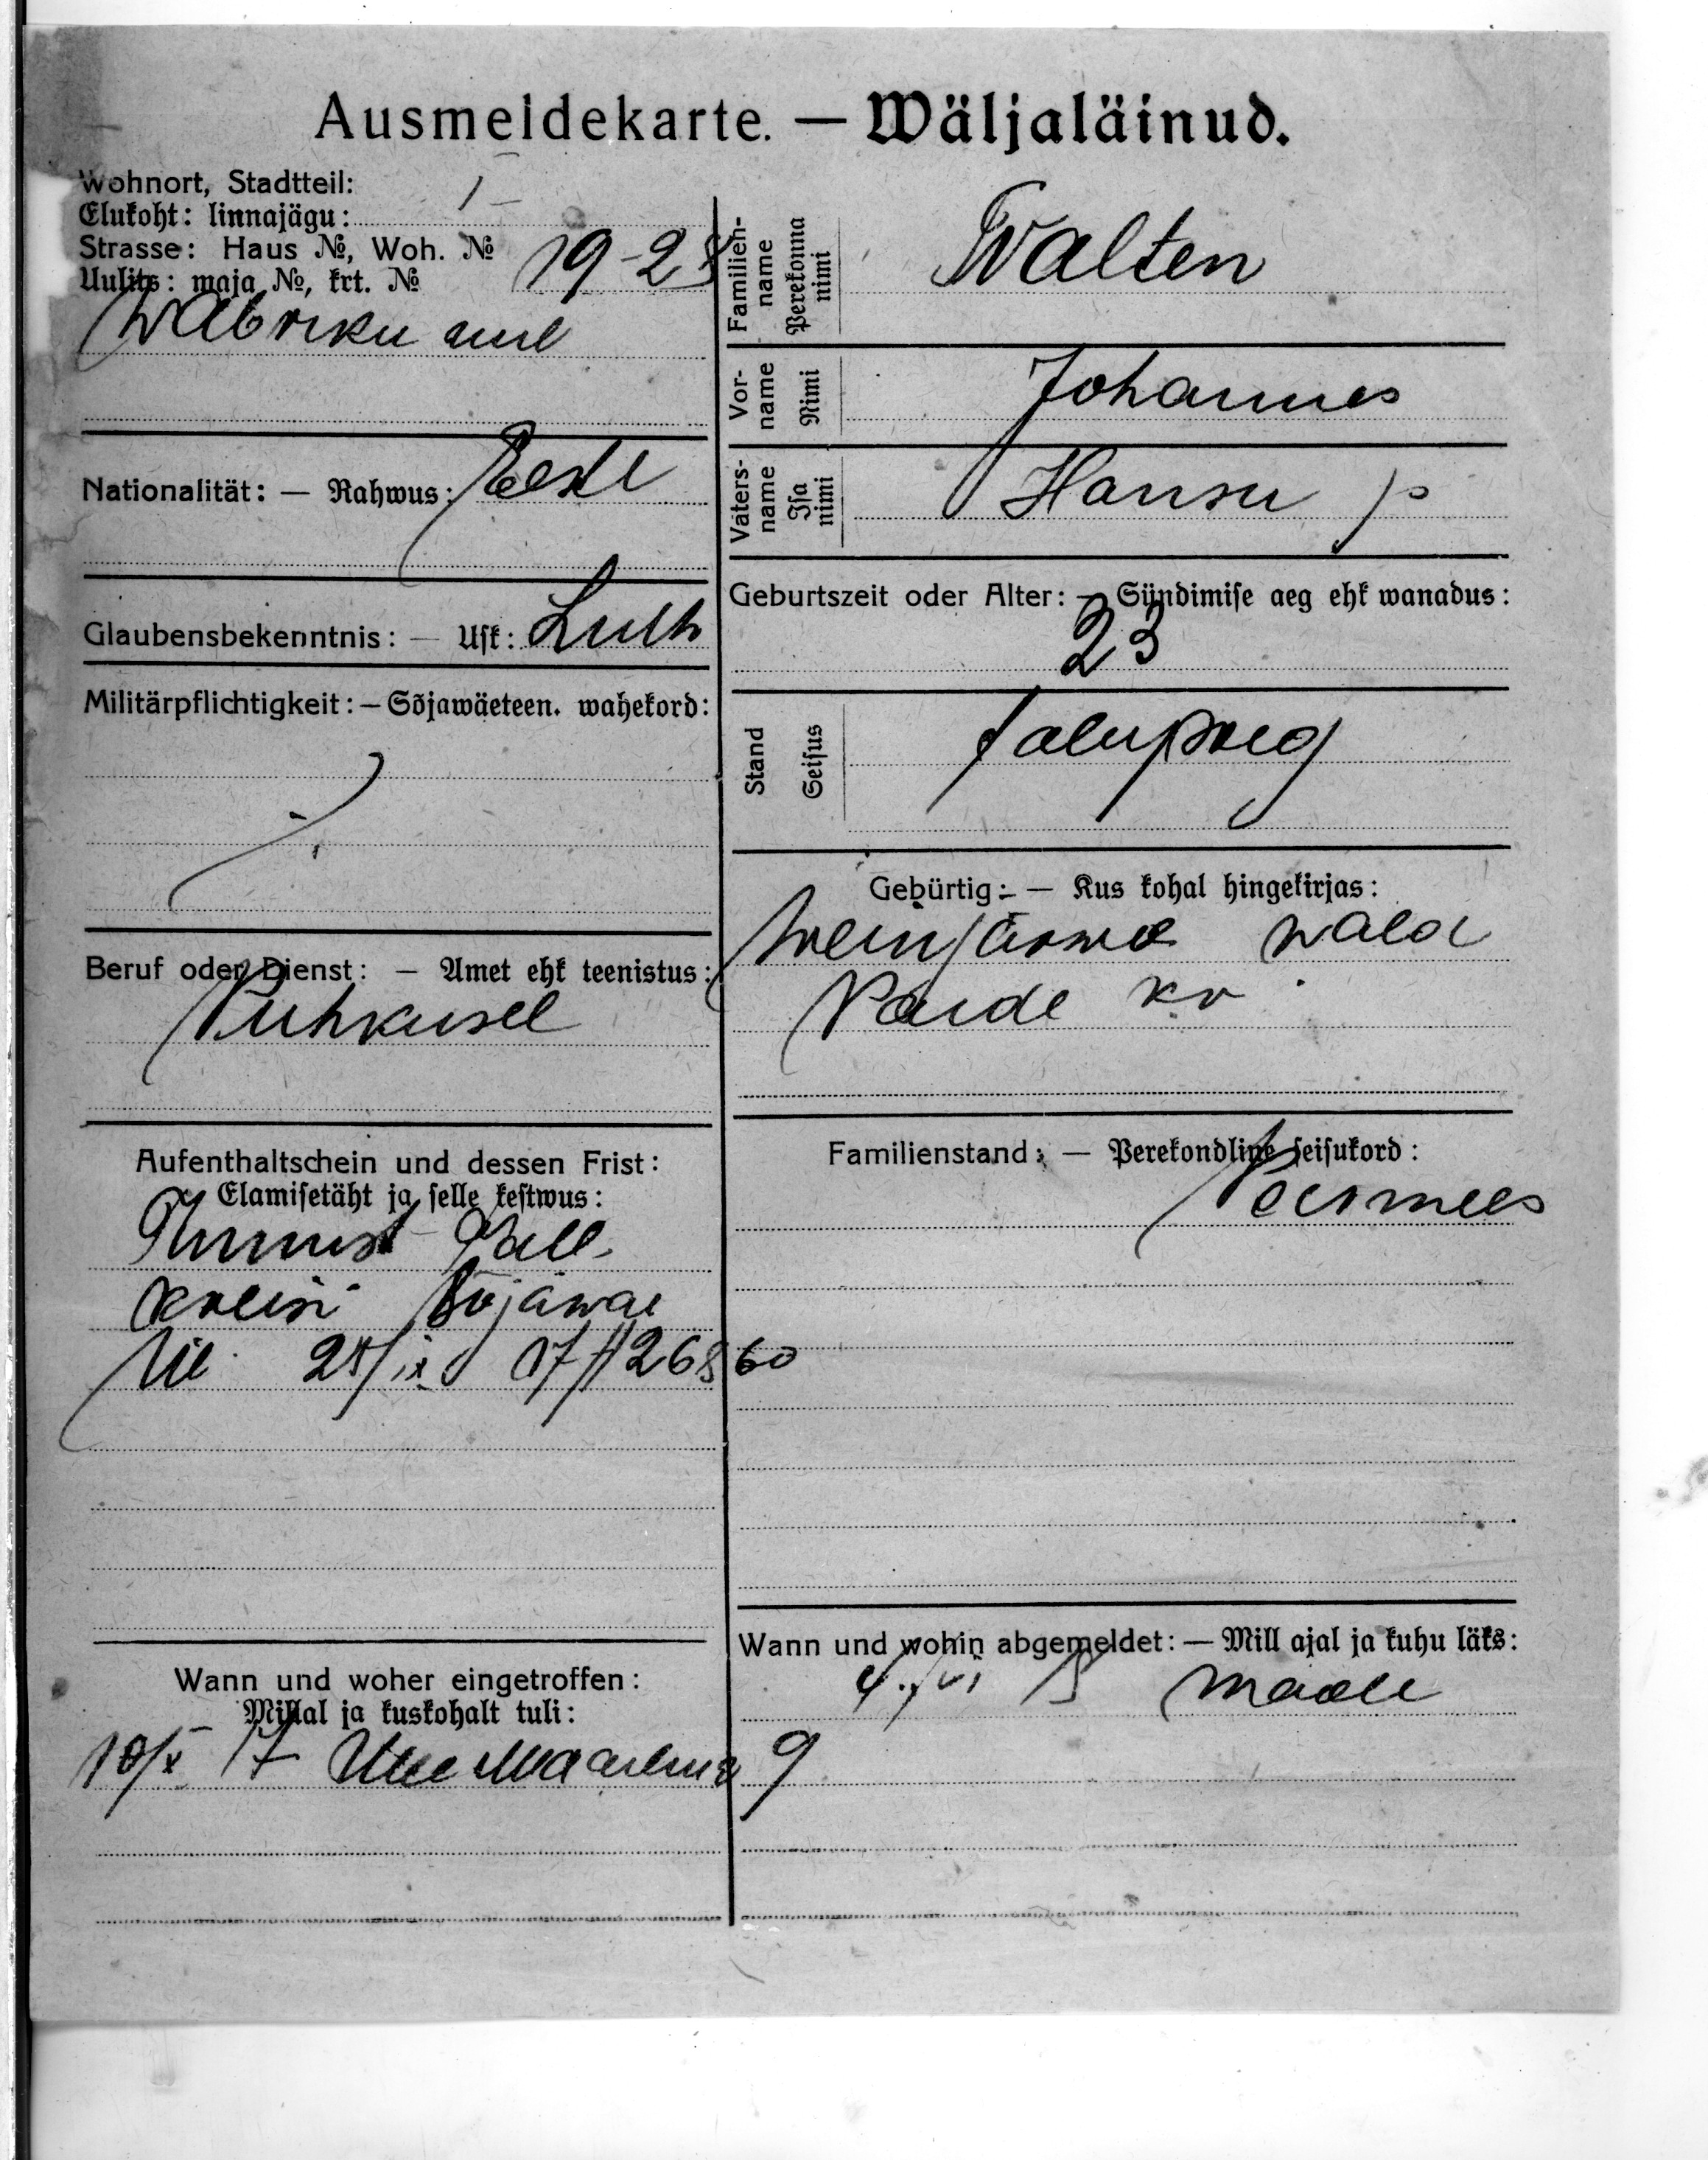 Ausmeldekarte. — Wäljaläinud.
Wohnort, Stadtteil:
Elukoht: linnajägu: I
Strasse: Haus №, Woh. №
Uulits: maja №, krt. № 19-28
Wabriku
Nationalität: — Rahwus: Eesti
Glaubensbekenntnis: — Usk: Luth
Militärpflichtigkeit: — Sõjawäeteen. wahekord:
Beruf oder Dienst: — Amet ehk teenistus:
Puhkusel
Aufenthaltschein und dessen Frist:
Elamisetäht ja selle kestwus:
Tunnist Tall.
kreisi Sõjawäe
Ül. 25/ix 17 # 26860
Wann und woher eingetroffen:
Millal ja kuskohalt tuli:
10/x 17
Familien-
name
Perekonna
nimi
Walten
Vor-
name
Nimi
Johannes
Vaters-
name
Isa
nimi
Hansu p
Geburtszeit oder Alter: — Sündimise aeg ehk wanadus:
23
Stand
Seisus
talupoeg
Gebürtig: — Kus kohal hingekirjas:
Weinjärwe wald
Paide kr
Familienstand: — Perekondline seisukord:
Poismees
Wann und wohin abgemeldet: — Mill ajal ja kuhu läks:
maale
9